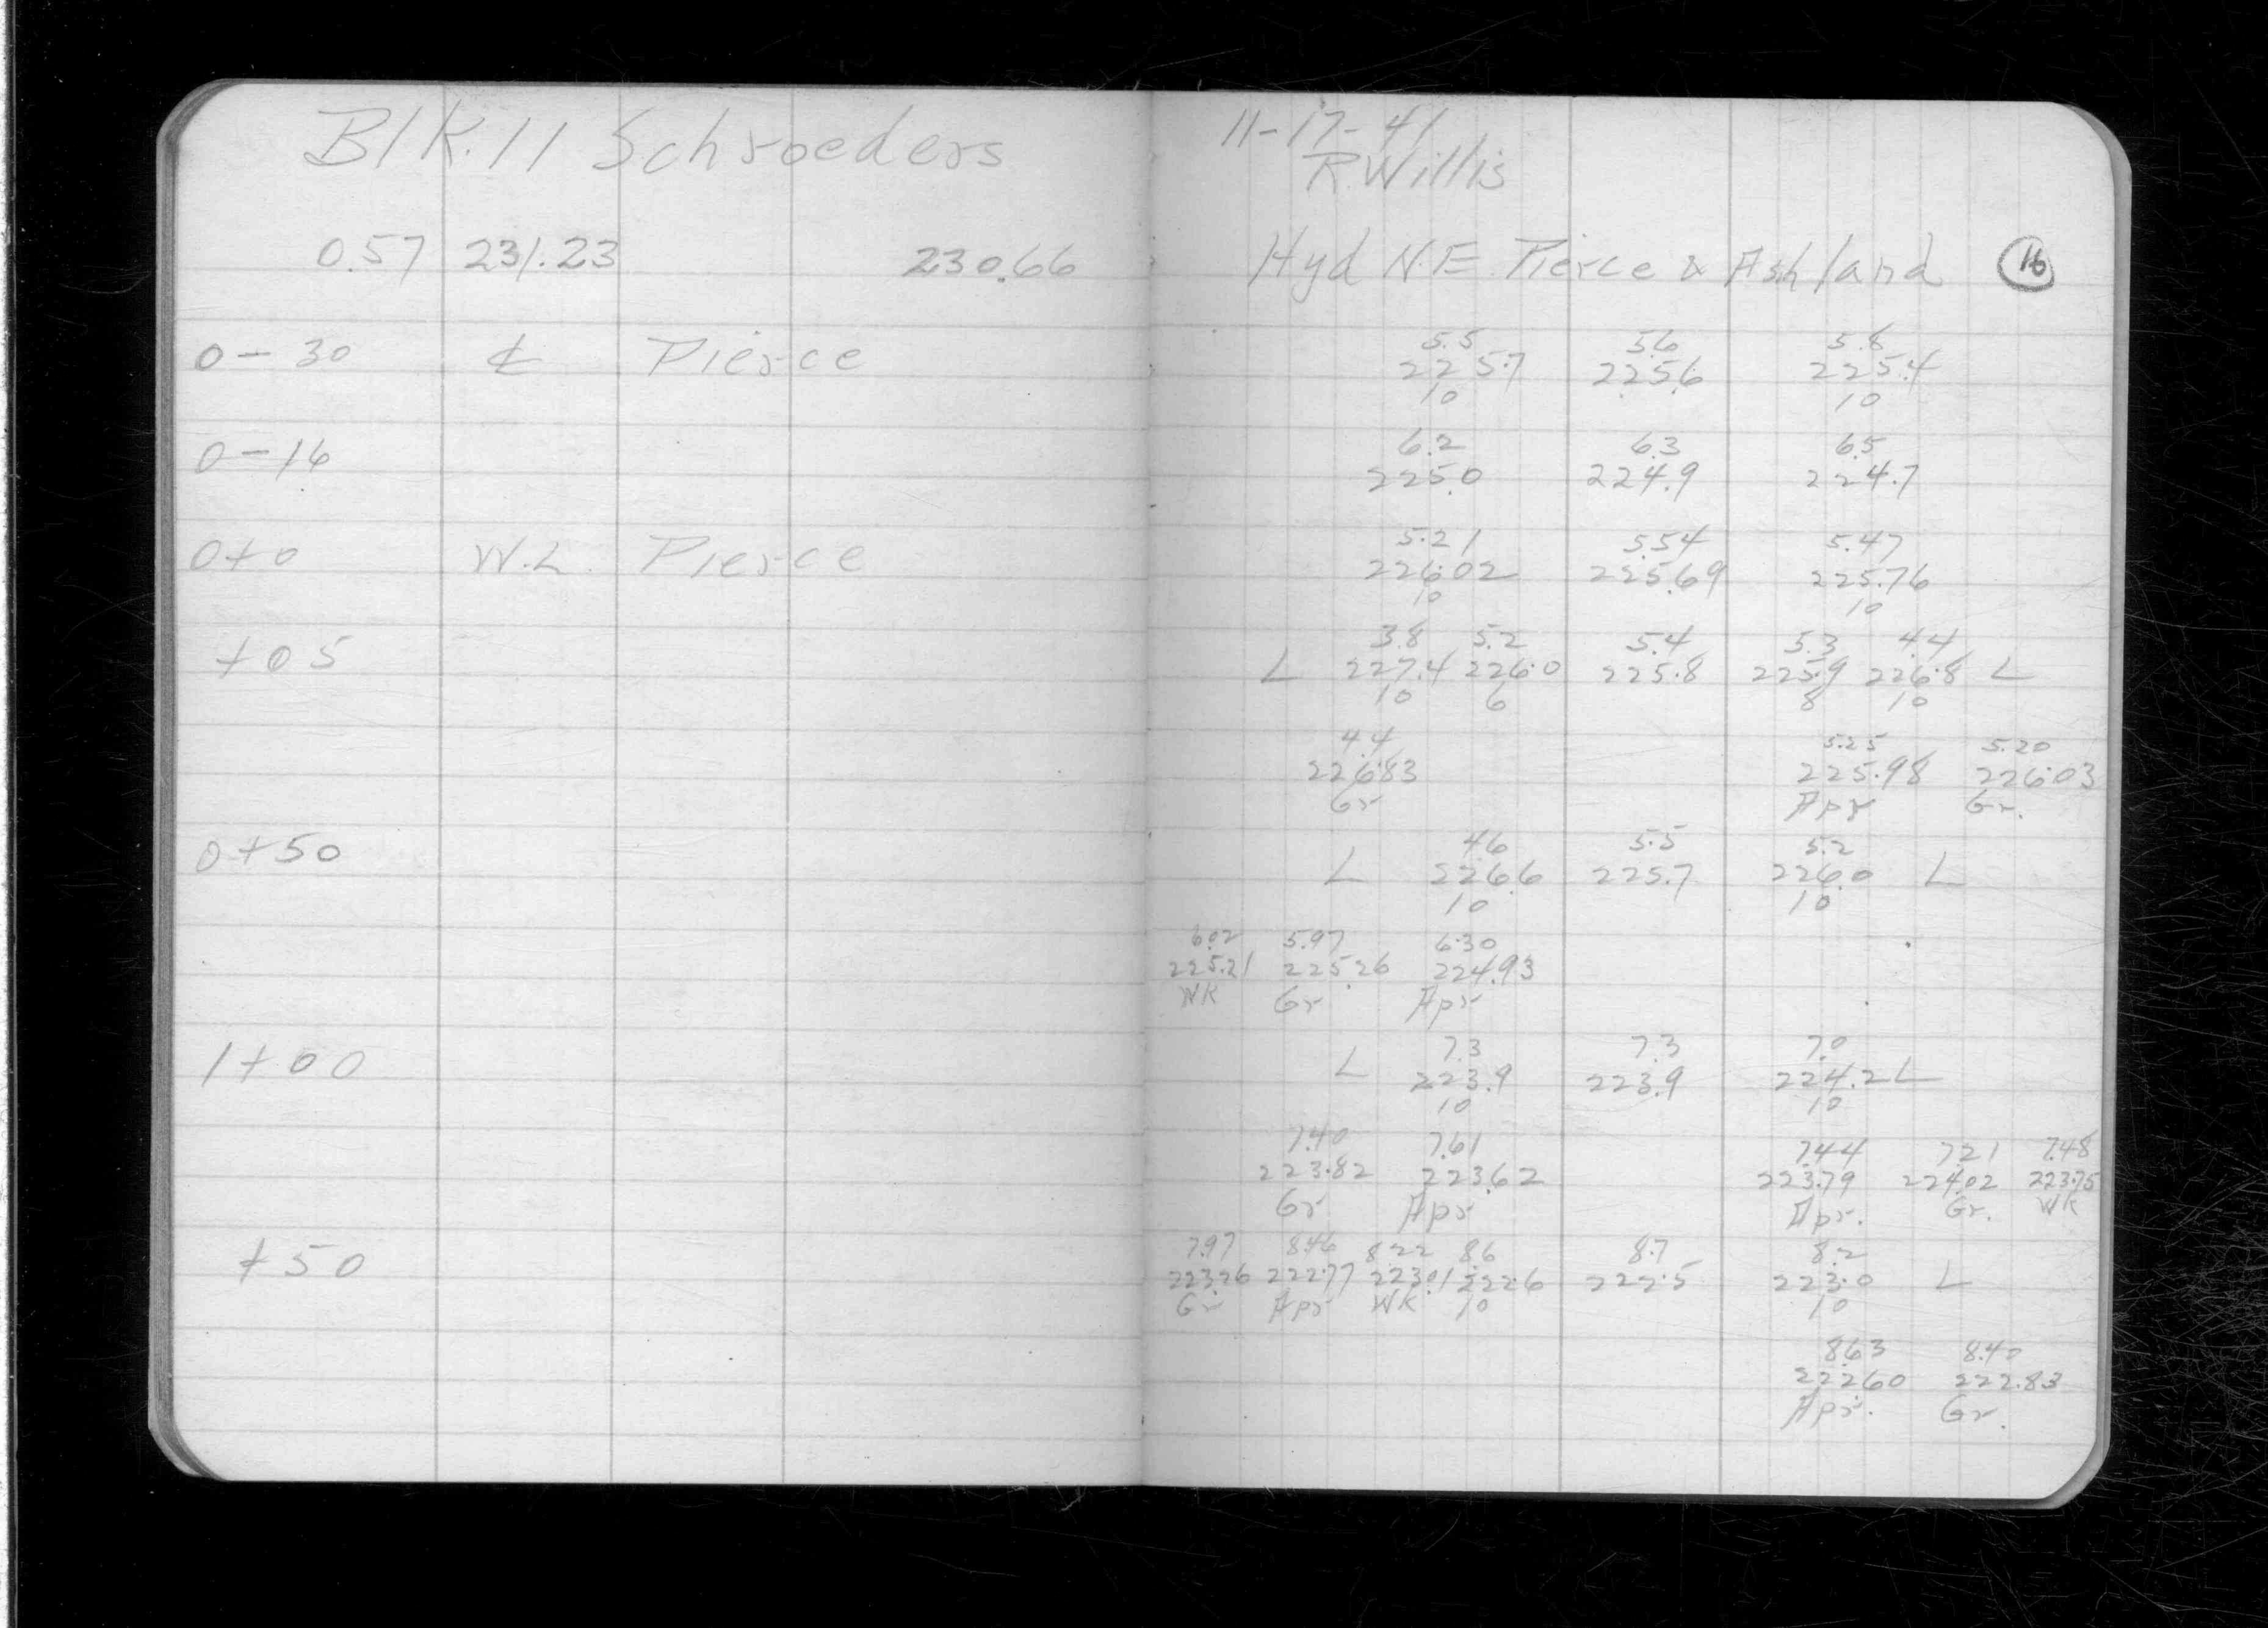 Blk. 11 Schroeders
11-17-41
R. Willis
0.57 231.23 230.66 Hyd N.E. Pierce & Ashland 16
5.5 5.6 5.8
0-30 ℄ Pierce 225.7 225.6 225.4
10 10
6.2 6.3 6.5
0-16 225.0 224.9 224.7
5.21 5.54 5.47
0+0 W.L. Pierce 226.02 225.69 225.76
10 10
3.8 5.2 5.4 5.3 4.4
+05 L 227.4 226.0 225.8 225.9 226.8 L
10 6 8 10
4.4 5.25 5.20
226.83 225.98 226.03
Gr Apr Gr.
4.6 5.5 5.2
0+50 L 226.6 225.7 226.0 L
10 10
6.02 5.97 6.30
225.21 225.26 224.93
WK Gr Apr
7.3 7.3 7.0
1+00 L 223.9 223.9 224.2 L
10 10
7.40 7.61 7.44 7.21 7.48
223.82 223.62 223.79 224.02 223.75
Gr Apr Apr. Gr. WK
7.97 8.46 8.22 8.6 8.7 8.2
+50 223.26 222.77 223.01 222.6 222.5 223.0 L
Gr Apr WK 10 10
8.63 8.40
222.60 222.83
Apr. Gr.